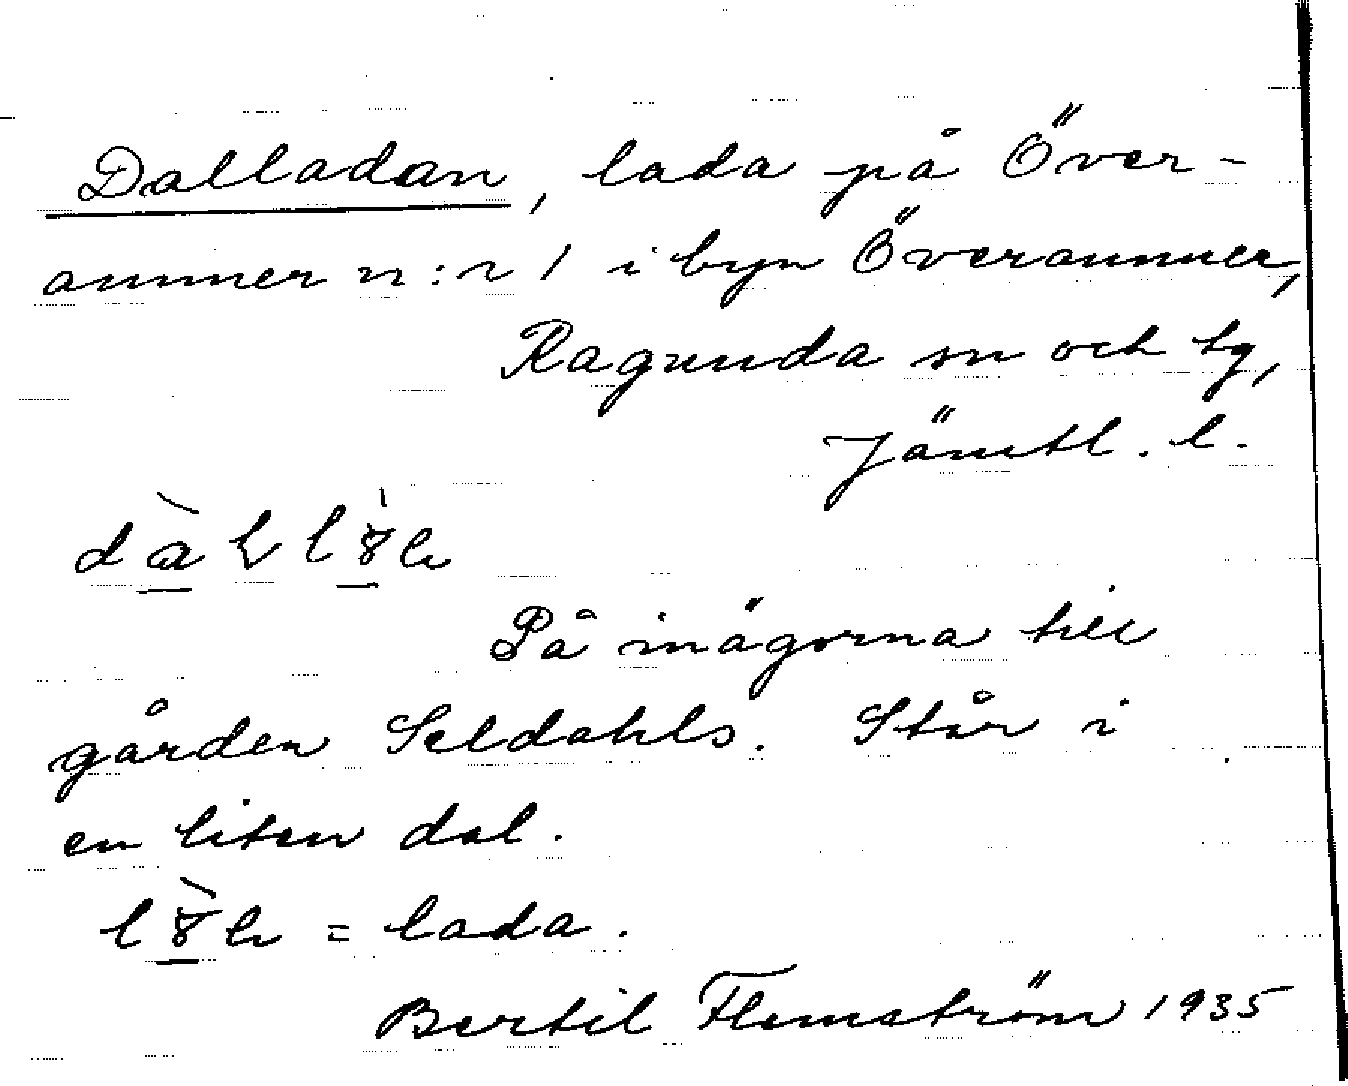 Dalladan, lada på Över-
ammer n:r 1 i byn Överammer,
Ragunda sn och tg,
Jämtl. l.
På inägorna till
gården Seldahls. Står i
en liten dal.
= lada.
Bertil Flemström 1935